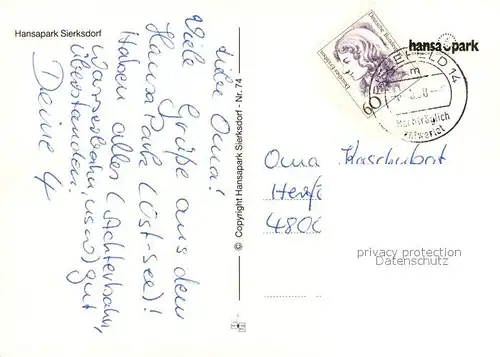 Hansapark Sierksdorf
Liebe Oma!
Viele Grüße aus dem
Hansa Park (Ost-see)!
Haben alles (Achterbahn,
Wasserbahn, usw) gut
überstanden.
Deine 4
© Copyright Hansapark Sierksdorf - Nr. 74
Deutsche Bundespost
60
hansapark
BIELEFELD 14
m
Nachträglich
entwertet
Oma Kaschubat
4800
privacy protection
Datenschutz